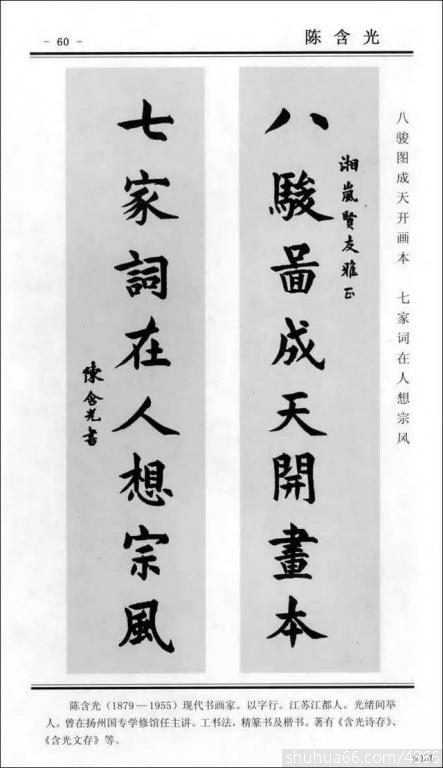 - 60 -
陈含光
八骏图成天开画本 七家词在人想宗风
湘嵐賢友雅正
八駿啚成天開畫本
七家詞在人想宗風
陳含光書
陈含光（1879—1955）现代书画家。以字行。江苏江都人。光绪间举
人。曾在扬州国专学修馆任主讲。工书法，精篆书及楷书。著有《含光诗存》、
《含光文存》等。
shuhua66.com/4866